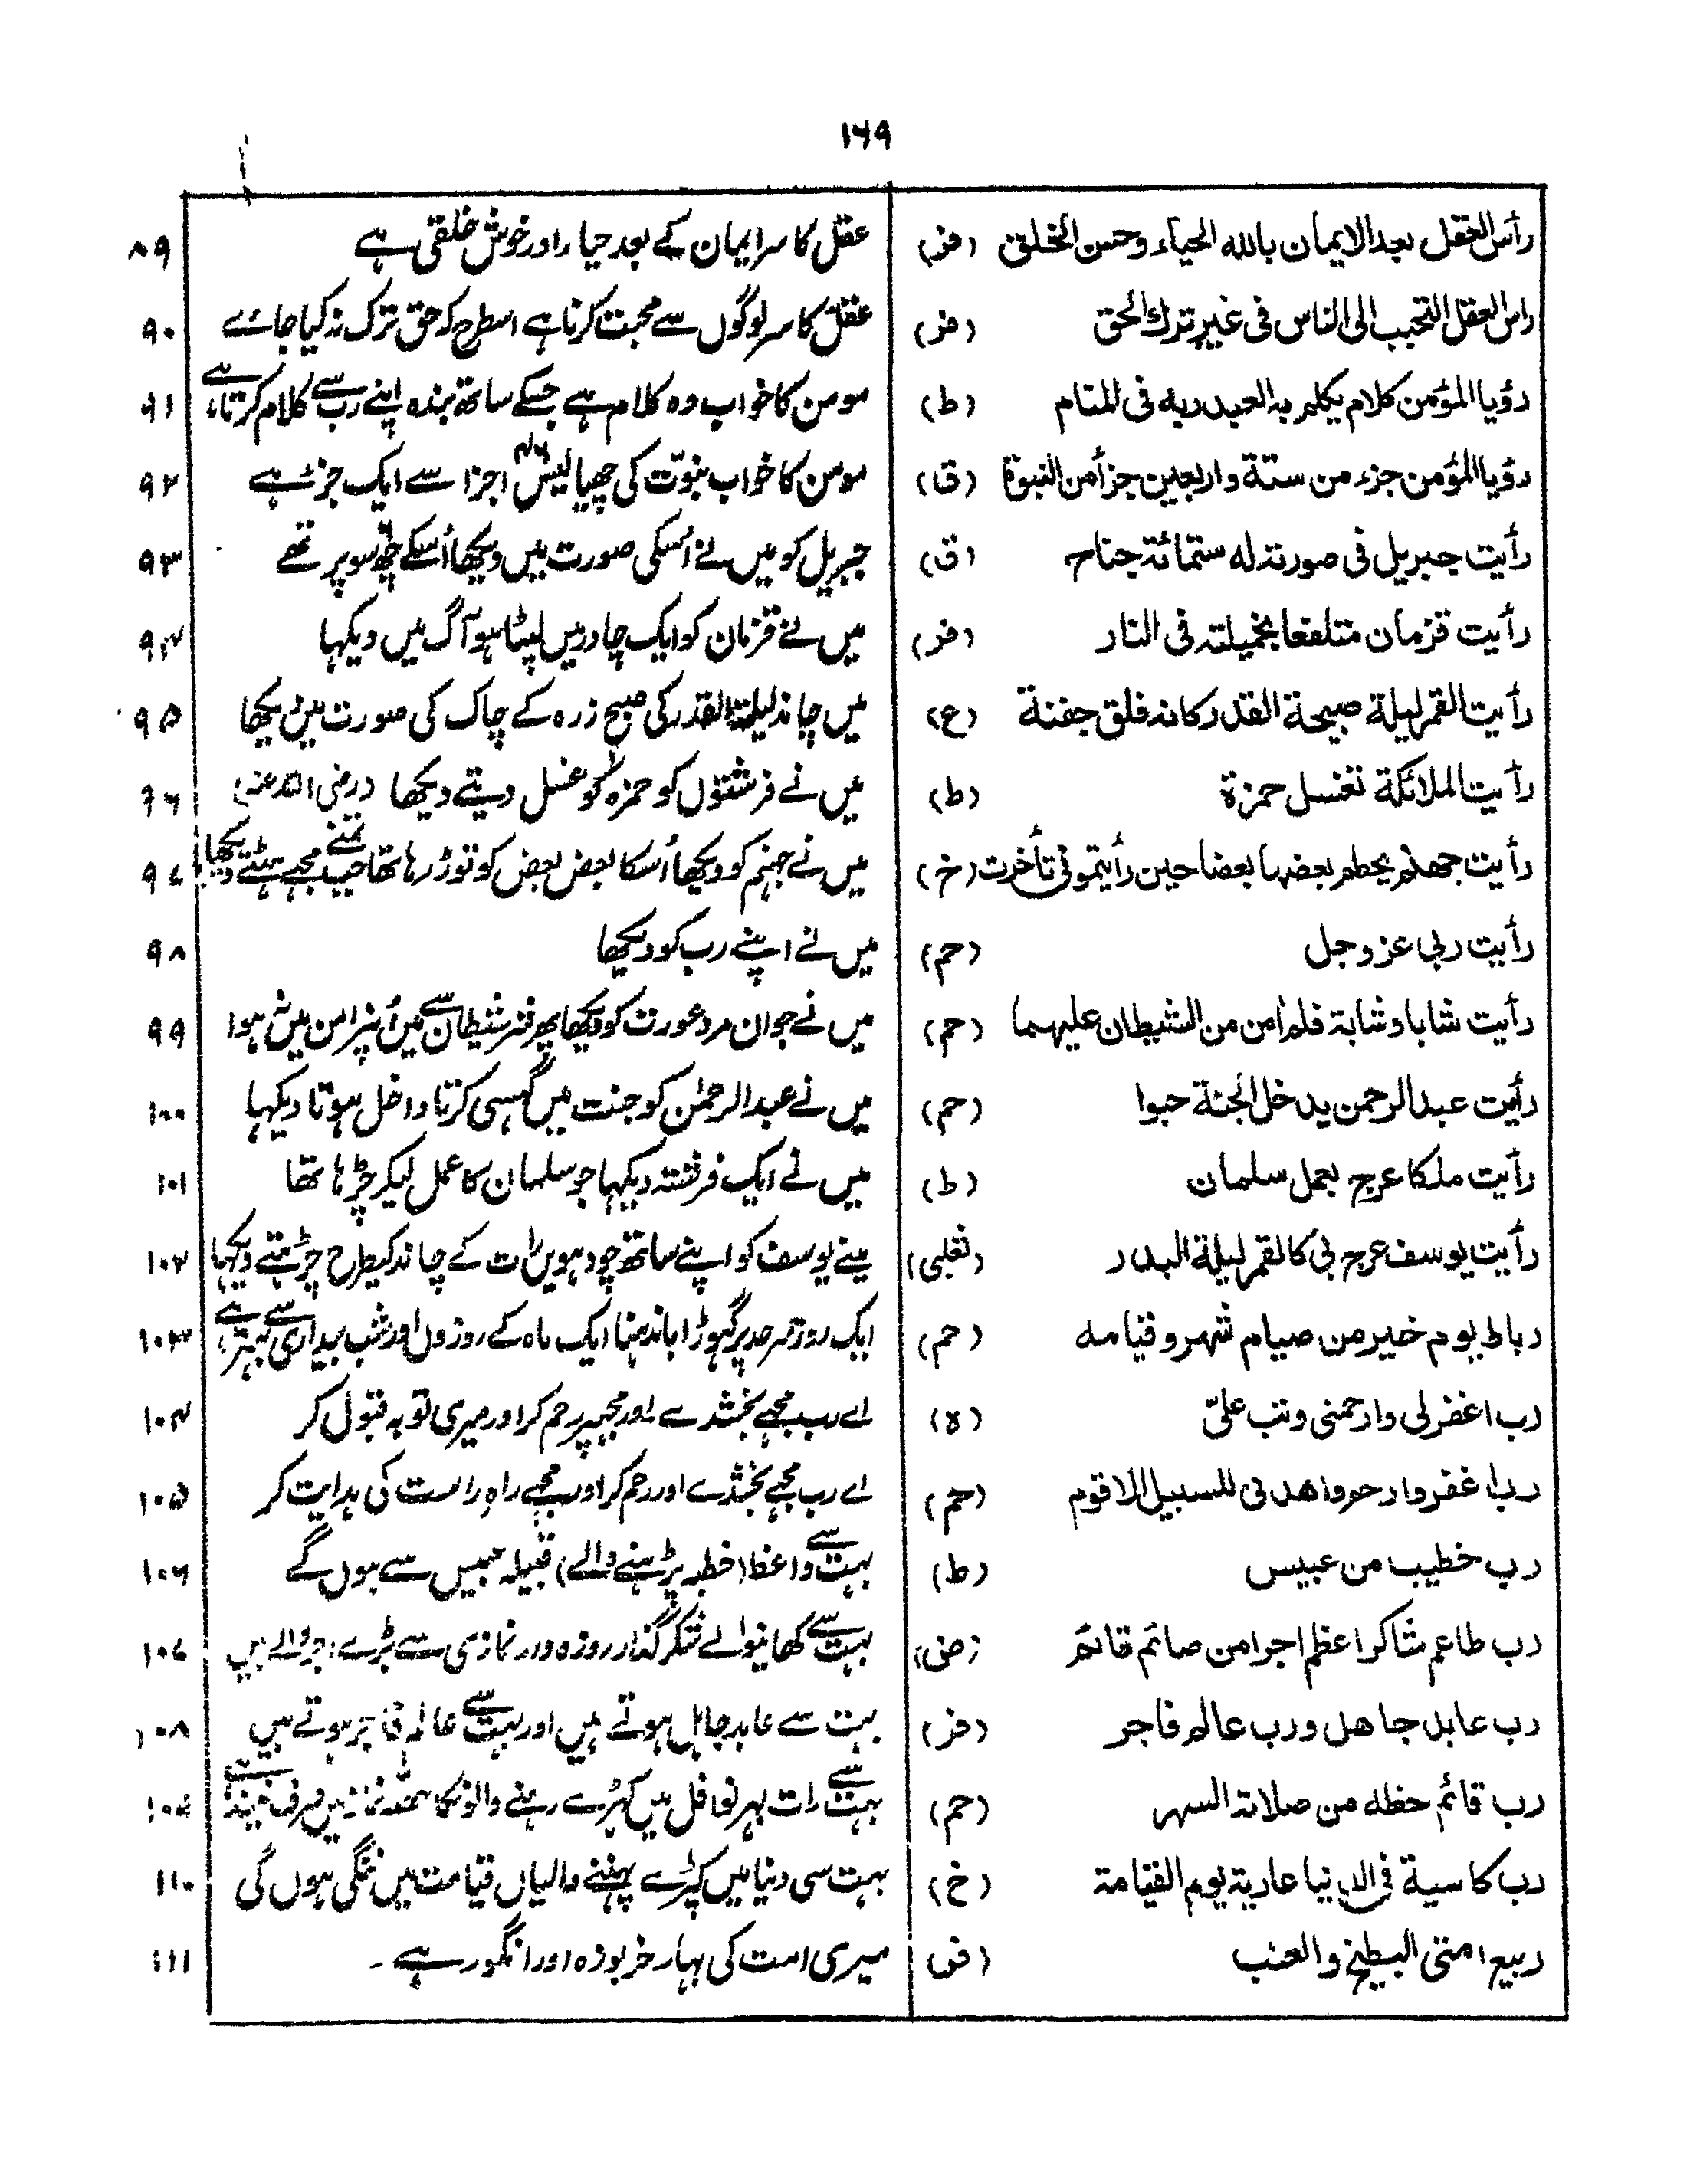 ۱۶۹
رأس العقل بعد الایمان بالله الحیاء وحسن الخلق (فر) عقل کا سر ایمان کے بعد حیا اور خوش خلقی ہے ۸۹
راس العقل التحبب الی الناس فی غیر ترك الحق (فر) عقل کا سر لوگوں سے محبت کرنا ہے اسطرح کہ حق ترک نہ کیا جائے ۹۰
رؤیا المؤمن کلام یکلم به العبد ربه فی المنام (ط) مومن کا خواب وہ کلام ہے جسکے ساتھ بندہ اپنے رب سے کلام کرتا ہے ۹۱
رؤیا المؤمن جزء من ستة واربعین جزأ من النبوة (ق) مومن کا خواب نبوّت کی چھیالیس ۴۶ اجزا سے ایک جزء ہے ۹۲
رأیت جبریل فی صورته له ستمائة جناح (ق) جبریل کو میں نے اُسکی صورت میں دیکھا اُسکے چھ سو پر تھے ۹۳
رأیت قزمان متلفعا بخمیلته فی النار (فر) میں نے قزمان کو ایک چادر میں لپٹا ہوا آگ میں دیکہا ۹۴
رأیت القمر لیلة صبیحة القدر کانه فلق جفنة (ع) میں چاند لیلۃ القدر کی صبح زرہ کے چاک کی صورت میں دیکھا ۹۵
رأیت الملائکة تغسل حمزة (ط) میں نے فرشتوں کو حمزہ کو غسل دیتے دیکھا (رضی اللہ عنہ) ۹۶
رأیت جهنم یحطم بعضها بعضا حین رأیتمونی تأخرت (خ) میں نے جہنم کو دیکھا اُسکا بعض بعض کو توڑ رہا تھا جب تمنے مجہے ہٹتے دیکھا ۹۷
رأیت ربی عز وجل (حم) میں نے اپنے رب کو دیکھا ۹۸
رأیت شابا وشابة فلم اٰمن من الشیطان علیهما (حم) میں نے جوان مرد عورت کو دیکھا پھر شر شیطان سے میں اُنپر امن میں نہ ہوا ۹۹
رأیت عبد الرحمن یدخل الجنة حبوا (حم) میں نے عبد الرحمٰن کو جنت میں گہسی کرتا داخل ہوتا دیکہا ۱۰۰
رأیت ملکا عرج بعمل سلمان (ط) میں نے ایک فرشتہ دیکہا جو سلمان کا عمل لیکر چڑہا تھا ۱۰۱
رأیت یوسف عرج بی کالقمر لیلة البدر (ثعلبی) مینے یوسف کو اپنے ساتھ چودہویں رات کے چاند کیطرح چڑہتے دیکہا ۱۰۲
رباط یوم خیر من صیام شهر وقیامه (حم) ایک روز سرحد پر گہوڑا باندہنا ایک ماہ کے روزوں اور شب بیداری سے بہتر ہے ۱۰۳
رب اغفرلی وارحمنی وتب علیّ (ه) اے رب مجہے بخشدے اور مجہپر رحم کر اور میری توبہ قبول کر ۱۰۴
رب اغفر وارحم واهدنی للسبیل الاقوم (حم) اے رب مجہے بخشدے اور رحم کر اور مجہے راہِ راست کی ہدایت کر ۱۰۵
رب خطیب من عبیس (ط) بہت سے واعظ (خطبہ پڑہنے والے) قبیلہ عبیس سے ہوں گے ۱۰۶
رب طاعم شاکر اعظم اجرا من صائم قائم (ض) بہت سے کھانیوالے شکر گذار روزہ دار نمازی سے بڑے اجر والے ہیں ۱۰۷
رب عابد جاهل ورب عالم فاجر (فر) بہت سے عابد جاہل ہوتے ہیں اور بہت سے عالم فاجر ہوتے ہیں ۱۰۸
رب قائم حظه من صلاته السهر (حم) بہت سے رات بہر نوافل میں کہڑے رہنے والونکا حصہ نماز میں صرف ۱۰۹
رب کاسیة فی الدنیا عاریة یوم القیامة (خ) بہت سی دنیا میں کپڑے پہننے والیاں قیامت میں ننگی ہوں گی ۱۱۰
ربیع امتی البطیخ والعنب (فر) میری امت کی بہار خربوزہ اور انگور ہے ۔ ۱۱۱